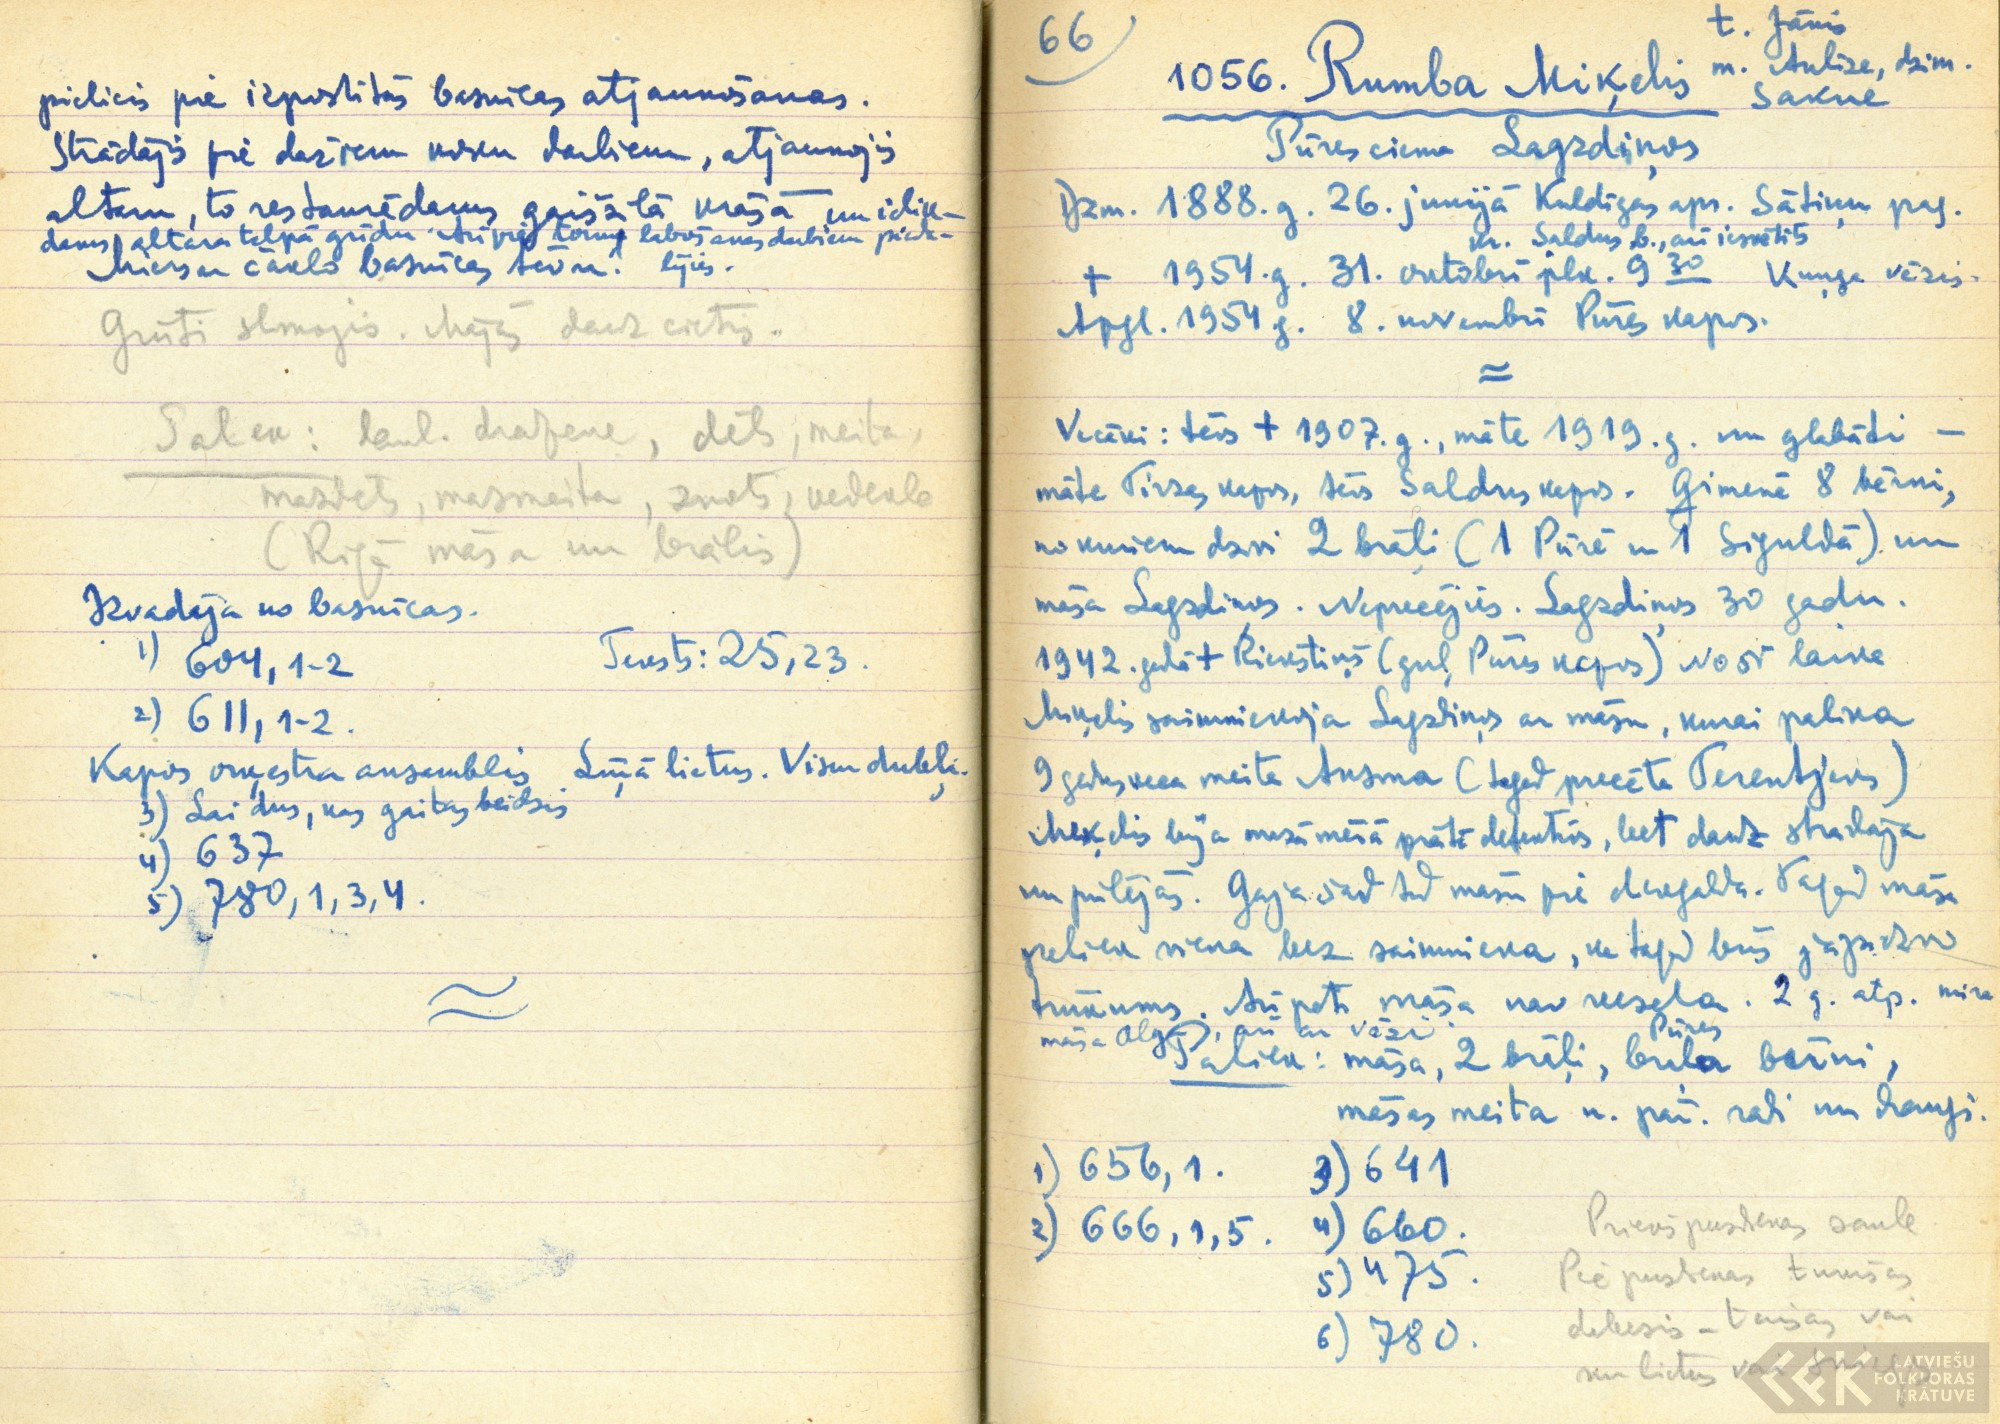 pielicis pie izpostītās baznīcas atjaunošanas.
Strādājis pie dažiem koku darbiem, atjaunojis
altari, to restaurēdams gaiši zilā krāsā un ielik-
dams altāra telpā grīdu. Arī pie torņa labošanas darbiem pieda-
lījies.
Mieru čaklo baznīcas tēvu!
Grūti slimojis. Mājās daudz cietis.
Paliek: laul. draudzene, dēls, meita,
mazdēls, mazmeita, znots, vedekla
(Rīgā māsa un brālis)
Izvadīja no baznīcas.
1) 604, 1-2
Teksts: 25,23.
2) 611, 1-2.
Kapos orķestra ansamblis Līņā lietus. Visur dubļi.
3) Lai dus, kas gaitas beidzis
4) 637
5) 780, 1, 3, 4.
66
1056. Rumba Miķelis
t. Jānis
m. Anlīze, dzim.
Sakne
Pūres ciema Lagzdiņos
Dzm. 1888. g. 26. jūnijā Kuldīgas apr. Sātiņu pag.
kr. Saldus b., arī iesvētīts
+ 1954. g. 31. oktobrī plk. 9 30 Kuņģa vēzis.
Apgl. 1954 g. 8. novembrī Pūres kapos.
Vecāki: tēvs + 1907. g., māte 1919. g. un glabāti –
māte Tirzas kapos, tēvs Saldus kapos. Ģimenē 8 bērni,
no kuriem dzīvi 2 brāļi (1 Pūrē un 1 Siguldā) un
māsa Lagzdiņos. Neprecējies. Lagzdiņos 30 gadu.
1942. gadā + Riekstiņš (guļ Pūres kapos) No šī laika
Miķelis saimniekoja Lagzdiņos ar māsu, kurai palika
9 gadus veca meita Ausma (tagad precēta Terentjevs)
Miķelis bija mazā mērā prātā defektīvs, bet daudz strādāja
un pūlējās. Gāja šad tad mūsu pie dievgalda. Tagad māsa
paliek viena bez saimnieka, ka tagad būs jāpadzīvo
trūkums. Arī pati māsa nav vesela. 2 g. atp. mira
māsa Olga, arī ar vēzi.
Pūres
Paliek: māsa, 2 brāļi, brāļa bērni,
māsas meita u. pār. radi un draugi.
1) 656, 1.
3) 641
2) 666, 1, 5.
4) 660.
5) 475.
6) 780.
Priekšpusdienas saule
Pēc pusdienas tumšas
debesis – taisās vai
nu lietus vai sniegs
LATVIEŠU
FOLKLORAS
KRĀTUVE